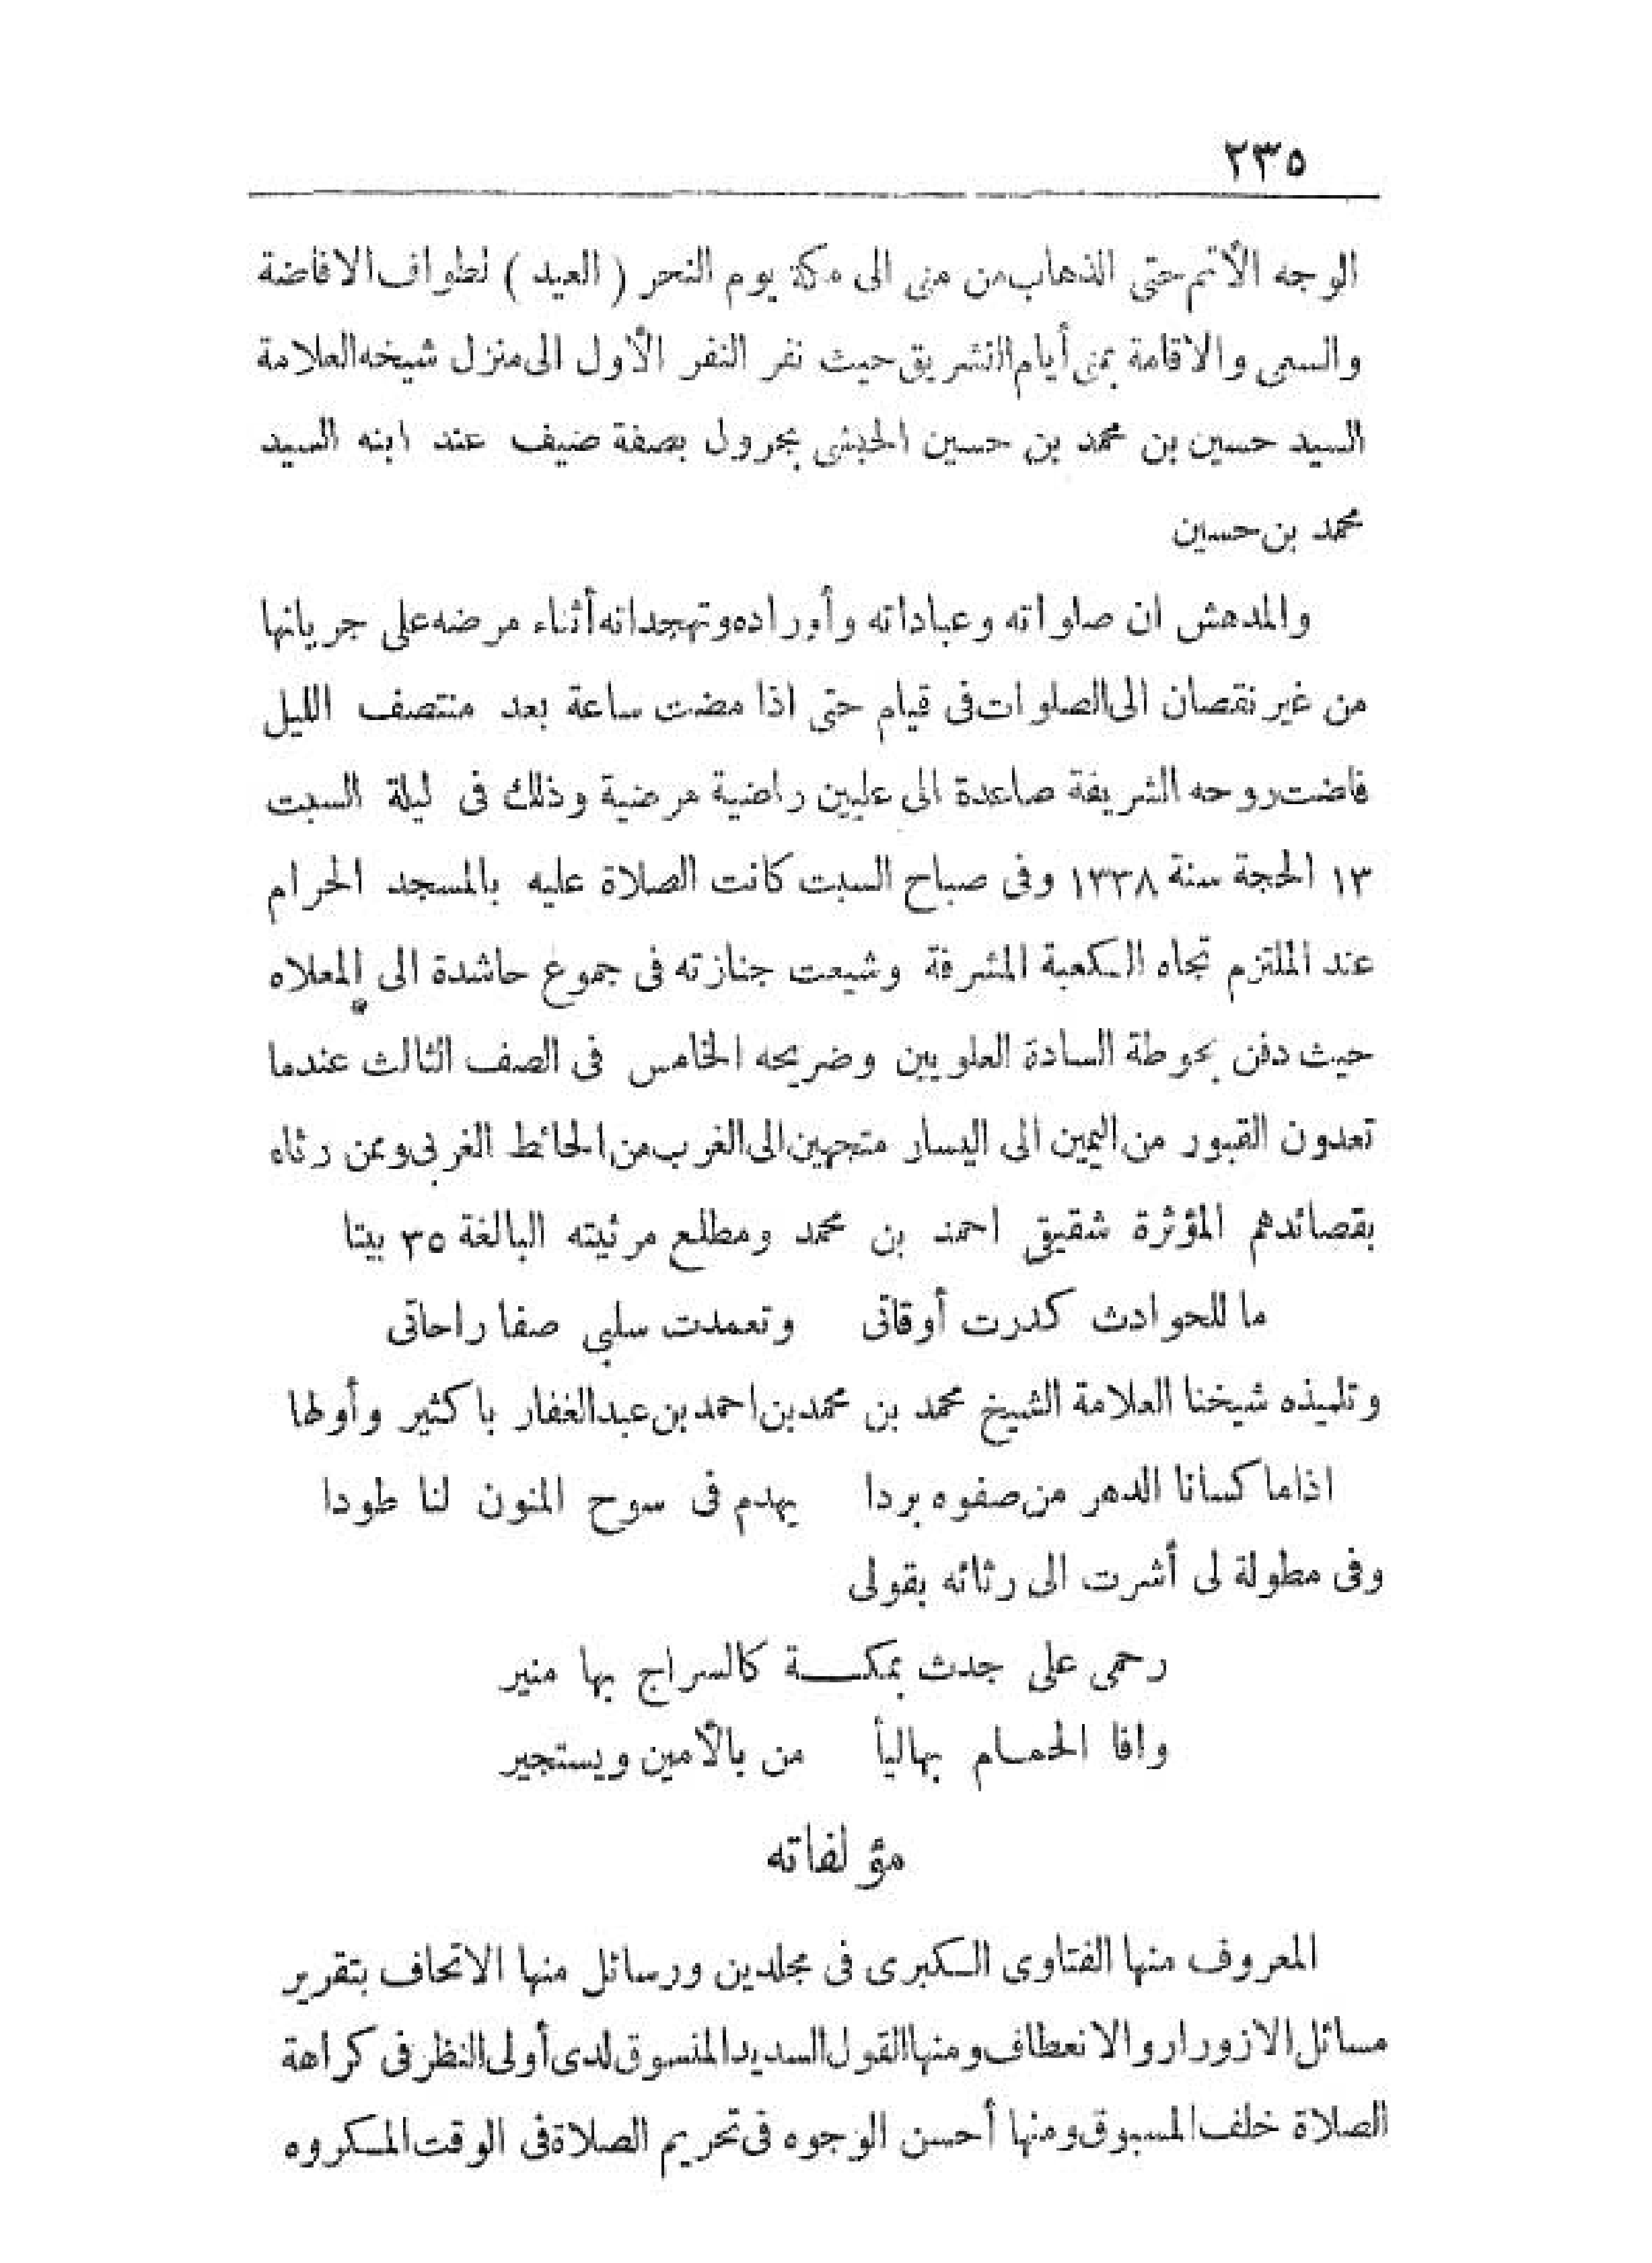 ٢٣٥
الوجه الأتم حتى الذهاب من منى الى مكة يوم النحر ( العيد ) لطواف الافاضة
والسعى والاقامة بمنى أيام التشريق حيث نفر النفر الأول الى منزل شيخه العلامة
السيد حسين بن محمد بن حسين الحبشى بجرول بصفة ضيف عند ابنه السيد
محمد بن حسين
والمدهش ان صلواته وعباداته وأوراده وتهجداته أثناء مرضه على جريانها
من غير نقصان الى الصلوات فى قيام حتى اذا مضت ساعة بعد منتصف الليل
فاضت روحه الشريفة صاعدة الى عليين راضية مرضية وذلك فى ليلة السبت
١٣ الحجة سنة ١٣٣٨ وفى صباح السبت كانت الصلاة عليه بالمسجد الحرام
عند الملتزم تجاه الكعبة المشرفة وشيعت جنازته فى جموع حاشدة الى المعلاه
حيث دفن بحوطة السادة العلويين وضريحه الخامس فى الصف الثالث عندما
تعدون القبور من اليمين الى اليسار متجهين الى الغرب من الحائط الغربى وممن رثاه
بقصائدهم المؤثرة شقيقى احمد بن محمد ومطلع مرثيته البالغة ٣٥ بيتا
ما للحوادث كدرت أوقاتى وتعمدت سلبى صفا راحاتى
وتلميذه شيخنا العلامة الشيخ محمد بن محمد بن احمد بن عبد الغفار باكثير وأولها
اذاما كسانا الدهر من صفوه بردا يهدم فى سوح المنون لنا طودا
وفى مطولة لى أشرت الى رثائه بقولى
رحمى على جدث بمكـــة كالسراج بها منير
وافا الحمام بها ليأ من بالأمين ويستجير
مؤلفاته
المعروف منها الفتاوى الكبرى فى مجلدين ورسائل منها الاتحاف بتقرير
مسائل الازورار والانعطاف ومنها القول السديد المنسوق لدى أولى النظر فى كراهة
الصلاة خلف المسبوق ومنها أحسن الوجوه فى تحريم الصلاة فى الوقت المكروه